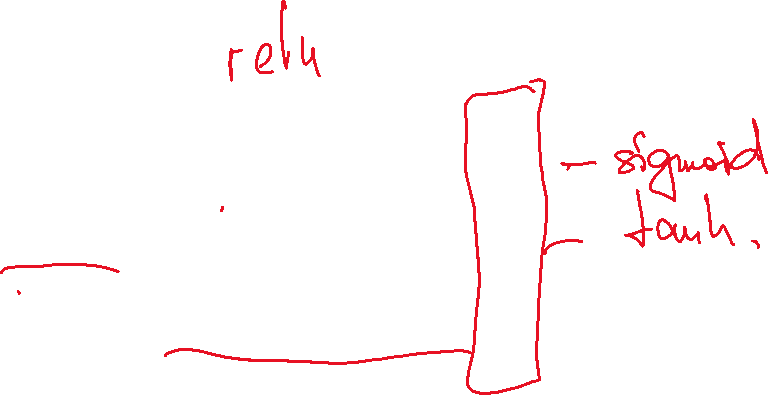 relu
- sigmoid
- tanh.